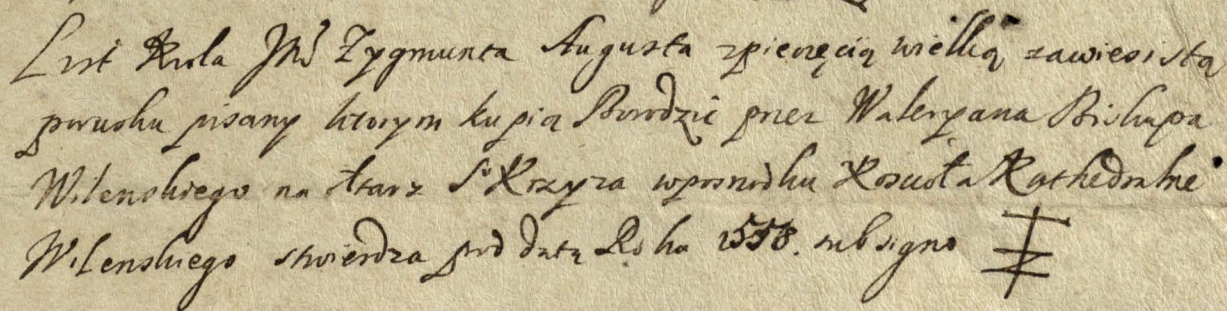 List Krola JMć Zygmunta Augusta zpieczęcią wielką zawiesistą
porusku pisany ktorym kupią Borodzic przez Waleryana Biskupa
Wilenskiego na ołtarz S. Krzyza wposrodku Koscioła Kathedralne
Wilenskiego stwierdza pod datą Roku 1558. sub signo